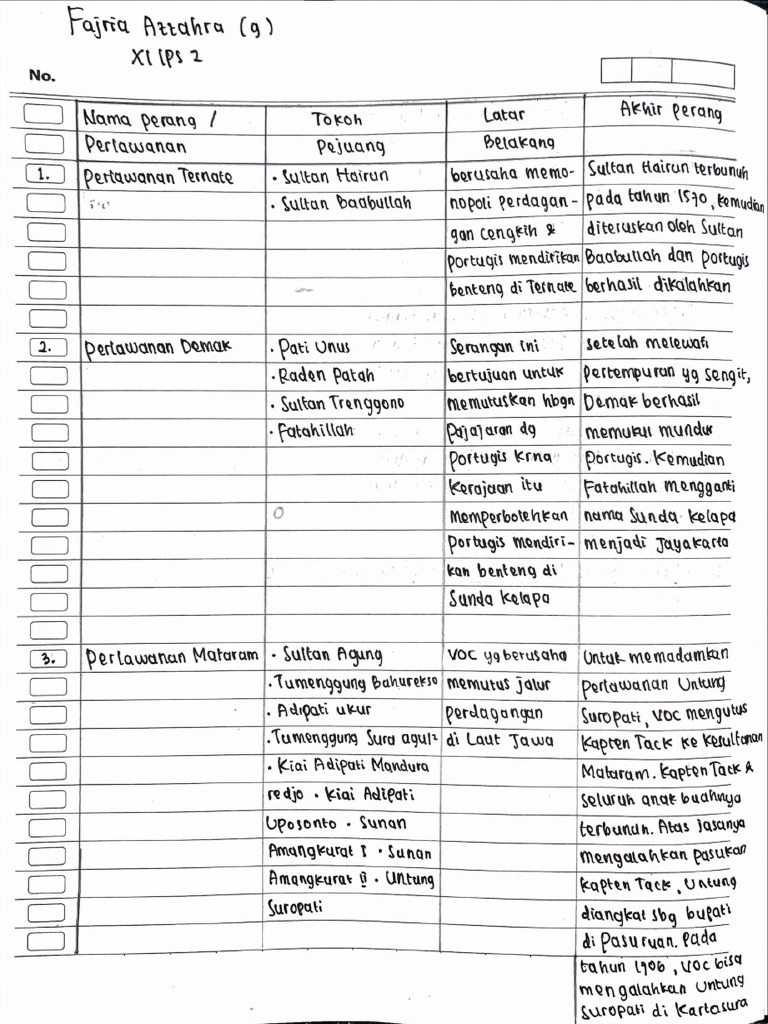 Fajria Azzahra (9)
XI IPS 2
No.
Nama perang / Tokoh Latar Akhir perang
Perlawanan Pejuang Belakang
1. Perlawanan Ternate · Sultan Hairun berusaha memo- Sultan Hairun terbunuh
· Sultan Baabullah nopoli perdagan- pada tahun 1570, kemudian
gan cengkih & diteruskan oleh Sultan
Portugis mendirikan Baabullah dan portugis
benteng di Ternate berhasil dikalahkan
2. Perlawanan Demak · Pati Unus Serangan ini setelah melewati
· Raden Patah bertujuan untuk Pertempuran yg sengit,
· Sultan Trenggono memutuskan hbgn Demak berhasil
· Fatahillah Pajajaran dg memukul mundur
Portugis krna Portugis. Kemudian
Kerajaan itu Fatahillah mengganti
memperbolehkan nama Sunda Kelapa
Portugis mendiri- menjadi Jayakarta
kan benteng di
Sunda Kelapa
3. Perlawanan Mataram · Sultan Agung VOC yg berusaha Untuk memadamkan
· Tumenggung Bahurekso memutus jalur perlawanan Untung
· Adipati ukur perdagangan Suropati, VOC mengutus
· Tumenggung Sura agul² di Laut Jawa Kapten Tack ke Kesultanan
· Kiai Adipati Mandura Mataram. Kapten Tack &
redjo · Kiai Adipati seluruh anak buahnya
Uposonto · Sunan terbunuh. Atas jasanya
Amangkurat I · Sunan mengalahkan pasukan
Amangkurat II · Untung Kapten Tack, Untung
Suropati diangkat sbg bupati
di Pasuruan. Pada
tahun 1906, VOC bisa
mengalahkan Untung
Suropati di Kartasura